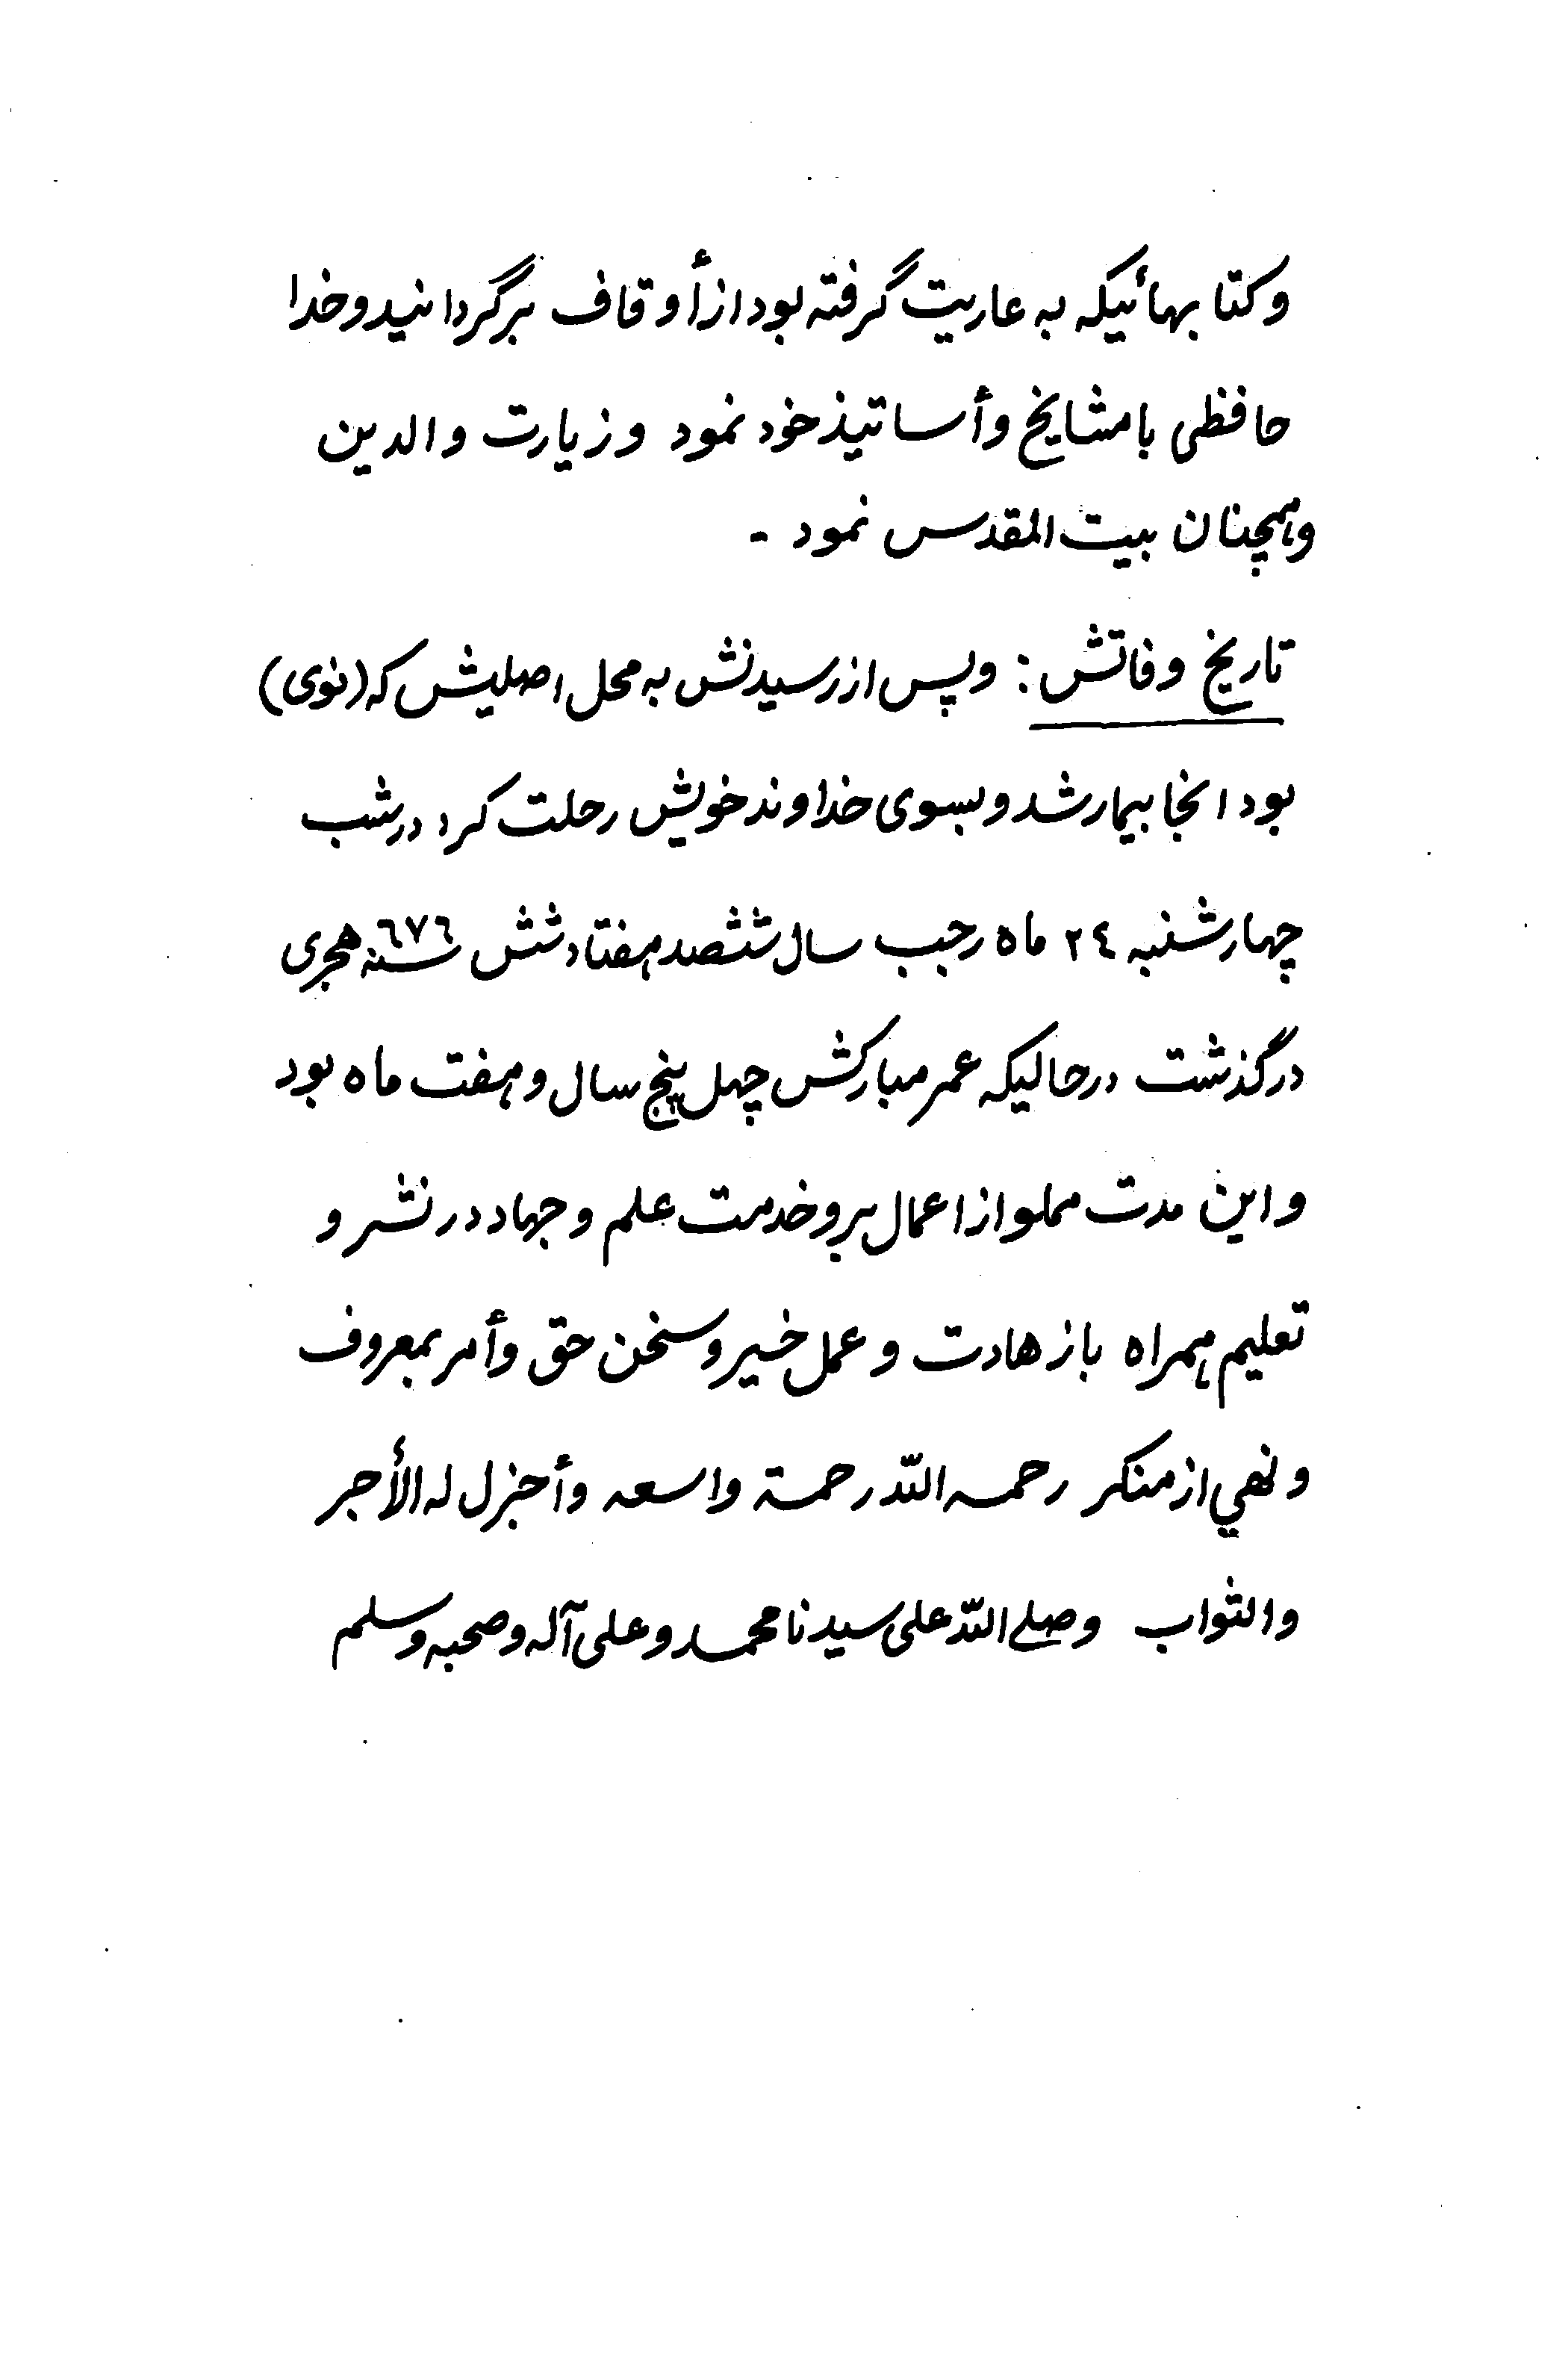 وکتابهائیکه به عاریت گرفته بود از أوقاف برگردانید و خدا
حافظی با مشایخ و أساتیذ خود نمود و زیارت والدین
وهمچنان بیت المقدس نمود -
تاریخ وفاتش : وپس از رسیدنش به محل اصلیش که (نوی)
بود انجا بیمار شد و بسوی خداوند خویش رحلت کرد در شب
چهارشنبه ٢٤ ماه رجب سال ششصد هفتاد شش ٦٧٦ سنه هجری
درگذشت در حالیکه عمر مبارکش چهل پنج سال و هفت ماه بود
و این مدت مملو از اعمال بر و خدمت علم و جهاد در نشر و
تعلیم همراه با زهادت و عمل خیر و سخن حق و أمر بمعروف
و نهي از منکر رحمه الله رحمة واسعه وأجزل له الأجر
والثواب وصلے الله علی سیدنا محمد و علی آله و صحبه وسلم